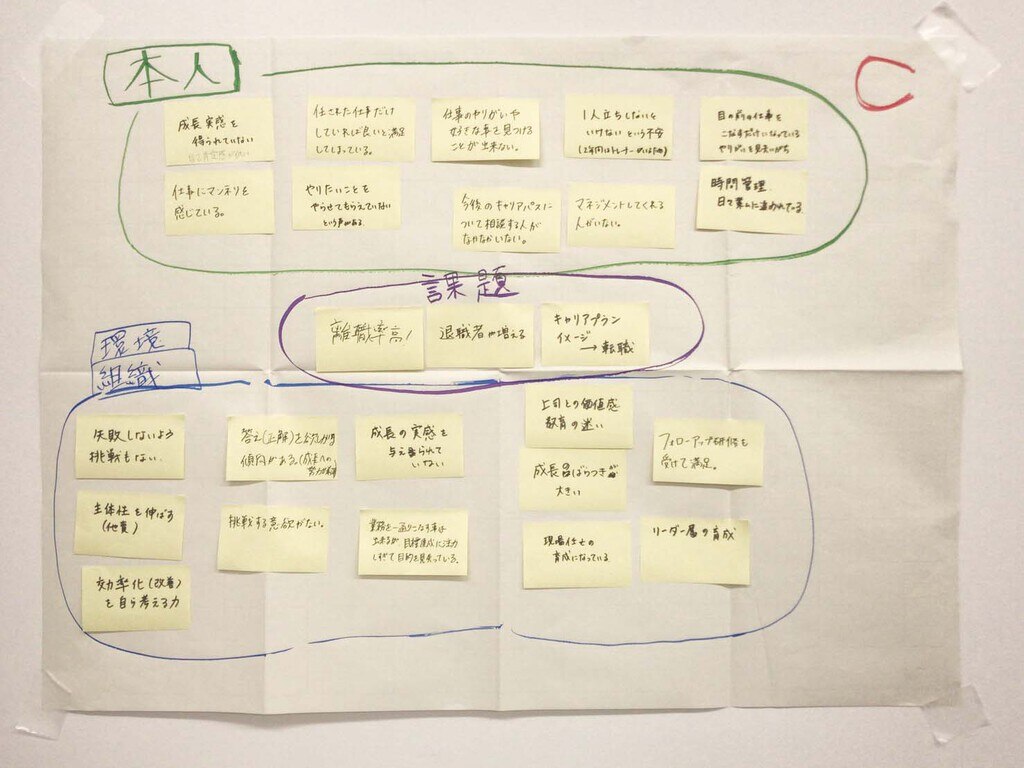 本人
C
成長実感を
得られていない
任された仕事だけ
していれば良いと満足
してしまっている。
仕事のやりがいや
好きな事を見つける
ことが出来ない。
1人立ちしないと
いけないという不安
(2年間はトレーナーがいるため)
目の前の仕事を
こなすだけになっている
やりがいを見失いがち
仕事にマンネリを
感じている。
やりたいことを
やらせてもらえていない
という声がある
今後のキャリアパスに
ついて相談する人が
なかなかいない。
マネジメントしてくれる
人がいない。
時間管理
日々業ムに追われている
課題
離職率高!
退職者が増える
キャリアプラン
イメージ
→転職
環境
組織
失敗しないよう
挑戦もない。
答え(正解)を欲しがる
傾向がある。(成長への
成長の実感を
与え切られて
いない
上司との価値感
教育の迷い
フォローアップ研修を
受けて満足。
成長ばらつきが
大きい
主体性を伸ばす
(他責)
挑戦する意欲がない。
業務を一通りこなす事は
出来るが目標達成に注力
しすぎて目的を見失っている。
現場任せの
育成になっている
リーダー層の育成
効率化(改善)
を自ら考える力